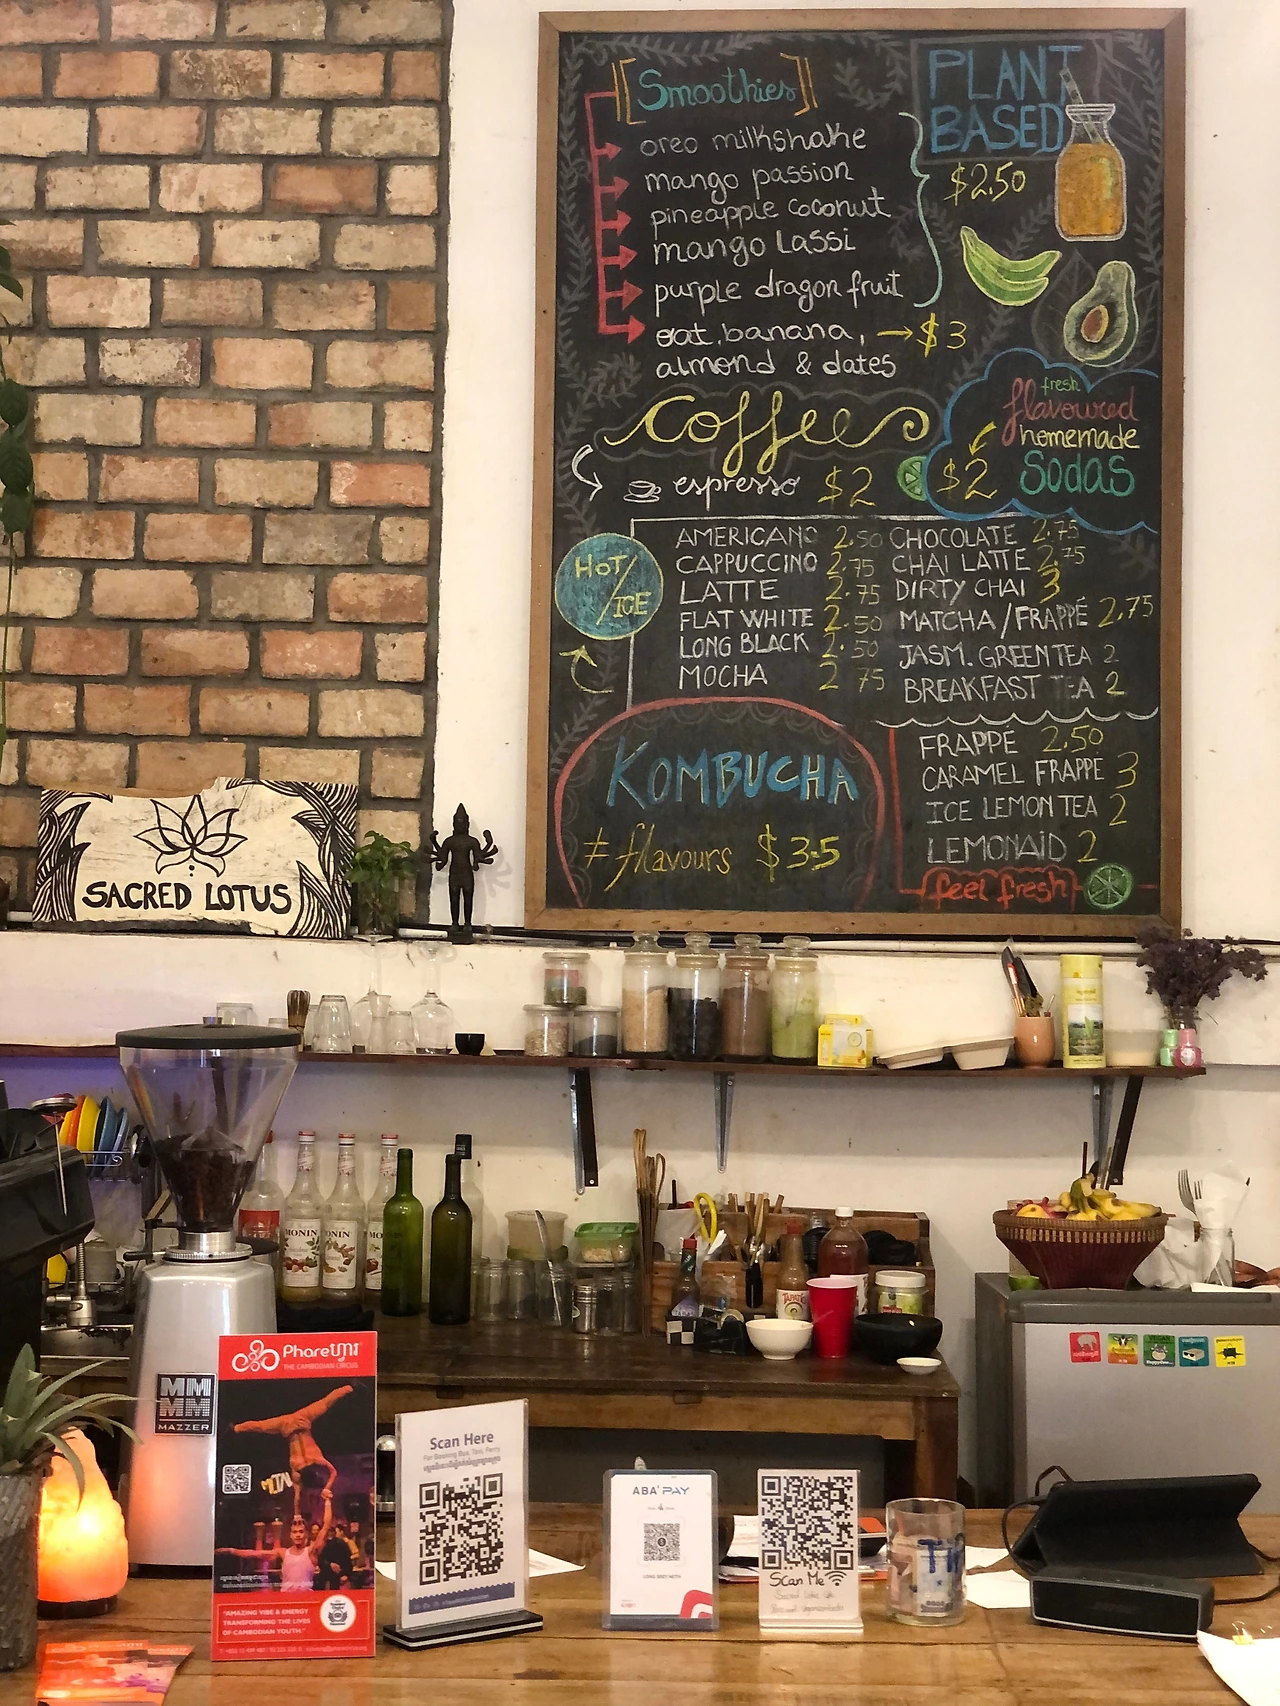 [[Smoothies]]
oreo milkshake
mango passion
pineapple coconut
mango Lassi
purple dragon fruit
oat, banana, → $3
almond & dates
PLANT
BASED
$2.50
Coffee
espresso $2
fresh
flavoured
homemade
$2 Sodas
HOT/
ICE
AMERICANO 2.50
CAPPUCCINO 2.75
LATTE 2.75
FLAT WHITE 2.50
LONG BLACK 2.50
MOCHA 2.75
CHOCOLATE 2.75
CHAI LATTE 2.75
DIRTY CHAI 3
MATCHA/FRAPPÉ 2.75
JASM. GREEN TEA 2
BREAKFAST TEA 2
KOMBUCHA
≠ flavours $3.5
FRAPPE 2.50
CARAMEL FRAPPE 3
ICE LEMON TEA 2
LEMONAID 2
feel fresh
SACRED LOTUS
MONIN
MONIN
TAPATIO
MMM
MMM
MAZZER
Phare
THE CAMBODIAN CIRCUS
"AMAZING VIBE & ENERGY
TRANSFORMING THE LIVES
OF CAMBODIAN YOUTH."
Scan Here
For Booking Bus, Taxi, Ferry
ABA' PAY
Scan Me
TIP
BOSE